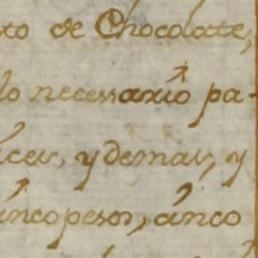 to de Chocolate,
lo necessario pa-
ucer, y demas, y
inco pesos, cinco